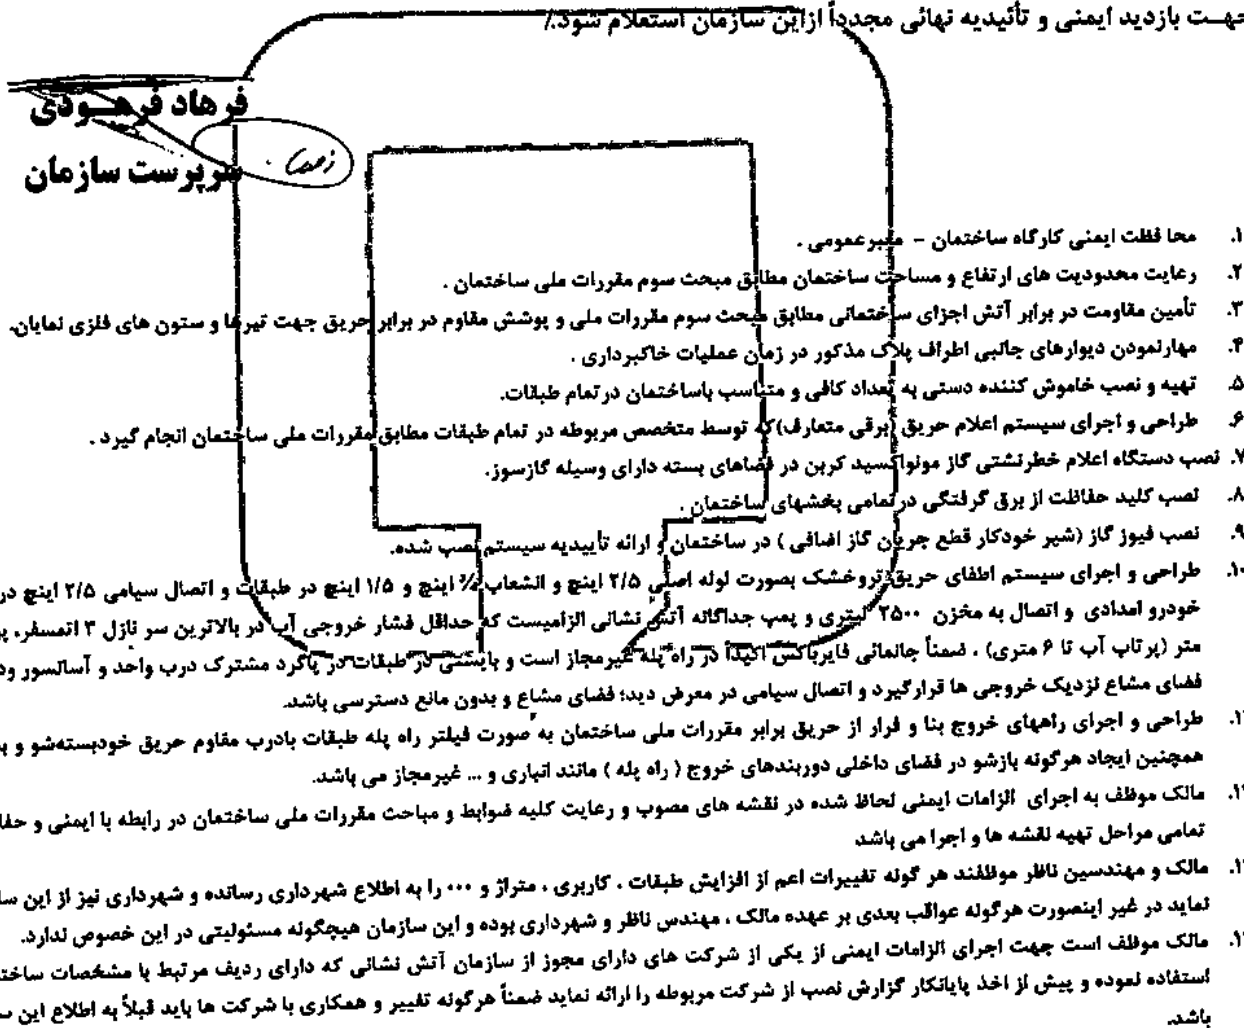 جهت بازدید ایمنی و تأئیدیه نهائی مجدداً ازاین سازمان استعلام شود./
فرهاد فرهودی
سرپرست سازمان
۱. محا فظت ایمنی کارگاه ساختمان - معبرعمومی .
۲. رعایت محدودیت های ارتفاع و مساحت ساختمان مطابق مبحث سوم مقررات ملی ساختمان .
۳. تأمین مقاومت در برابر آتش اجزای ساختمانی مطابق مبحث سوم مقررات ملی و پوشش مقاوم در برابر حریق جهت تیرها و ستون های فلزی نمایان.
۴. مهارنمودن دیوارهای جانبی اطراف پلاک مذکور در زمان عملیات خاکبرداری .
۵. تهیه و نصب خاموش کننده دستی به تعداد کافی و متناسب باساختمان درتمام طبقات.
۶. طراحی و اجرای سیستم اعلام حریق (برقی متعارف)که توسط متخصص مربوطه در تمام طبقات مطابق مقررات ملی ساختمان انجام گیرد .
۷. نصب دستگاه اعلام خطرنشتی گاز مونواکسید کربن در فضاهای بسته دارای وسیله گازسوز.
۸. نصب کلید حفاظت از برق گرفتگی درتمامی بخشهای ساختمان .
۹. نصب فیوز گاز (شیر خودکار قطع جریان گاز اضافی ) در ساختمان و ارائه تأییدیه سیستم نصب شده.
۱۰. طراحی و اجرای سیستم اطفای حریق تروخشک بصورت لوله اصلی ۲/۵ اینچ و انشعاب ¾ اینچ و ۱/۵ اینچ در طبقات و اتصال سیامی ۲/۵ اینچ در
خودرو امدادی و اتصال به مخزن ۲۵۰۰ لیتری و پمپ جداگانه آتش نشانی الزامیست که حداقل فشار خروجی آب در بالاترین سر نازل ۳ اتمسفر،
متر (پرتاب آب تا ۶ متری) . ضمناً جانمائی فایرباکس اکیداً در راه پله غیرمجاز است و بایستی در طبقات در پاگرد مشترک درب واحد و آسانسور
فضای مشاع نزدیک خروجی ها قرارگیرد و اتصال سیامی در معرض دید؛ فضای مشاع و بدون مانع دسترسی باشد.
طراحی و اجرای راههای خروج بنا و فرار از حریق برابر مقررات ملی ساختمان به صورت فیلتر راه پله طبقات بادرب مقاوم حریق خودبسته‌شو و
همچنین ایجاد هرگونه بازشو در فضای داخلی دوربندهای خروج ( راه پله ) مانند انباری و ... غیرمجاز می باشد.
مالک موظف به اجرای الزامات ایمنی لحاظ شده در نقشه های مصوب و رعایت کلیه ضوابط و مباحث مقررات ملی ساختمان در رابطه با ایمنی و
تمامی مراحل تهیه نقشه ها و اجرا می باشد
مالک و مهندسین ناظر موظفند هر گونه تغییرات اعم از افزایش طبقات ، کاربری ، متراژ و ... را به اطلاع شهرداری رسانده و شهرداری نیز از این
نماید در غیر اینصورت هرگونه عواقب بعدی بر عهده مالک ، مهندس ناظر و شهرداری بوده و این سازمان هیچگونه مسئولیتی در این خصوص ندارد.
مالک موظف است جهت اجرای الزامات ایمنی از یکی از شرکت های دارای مجوز از سازمان آتش نشانی که دارای ردیف مرتبط با مشخصات
استفاده نموده و پیش از اخذ پایانکار گزارش نصب از شرکت مربوطه را ارائه نماید ضمناً هرگونه تغییر و همکاری با شرکت ها باید قبلاً به اطلاع این
باشد.